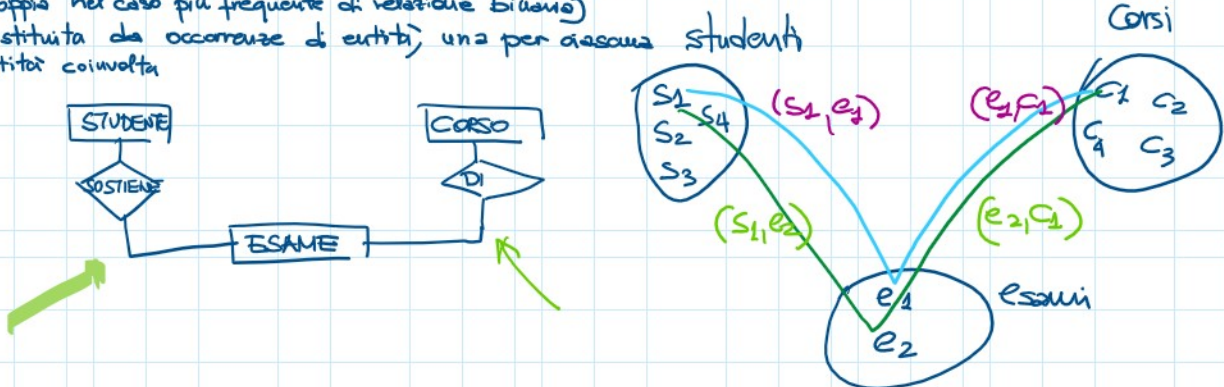 nel caso più frequente di relazione binaria)
stituita da occorrenze di entità, una per ciascuna
tità coinvolta
studenti
Corsi
STUDENTE
CORSO
SOSTIENE
DI
ESAME
S1
S4
S2
S3
(S1,e1)
(e1,C1)
C1
C2
C4
C3
(S1,e2)
(e2,C1)
e1
esami
e2